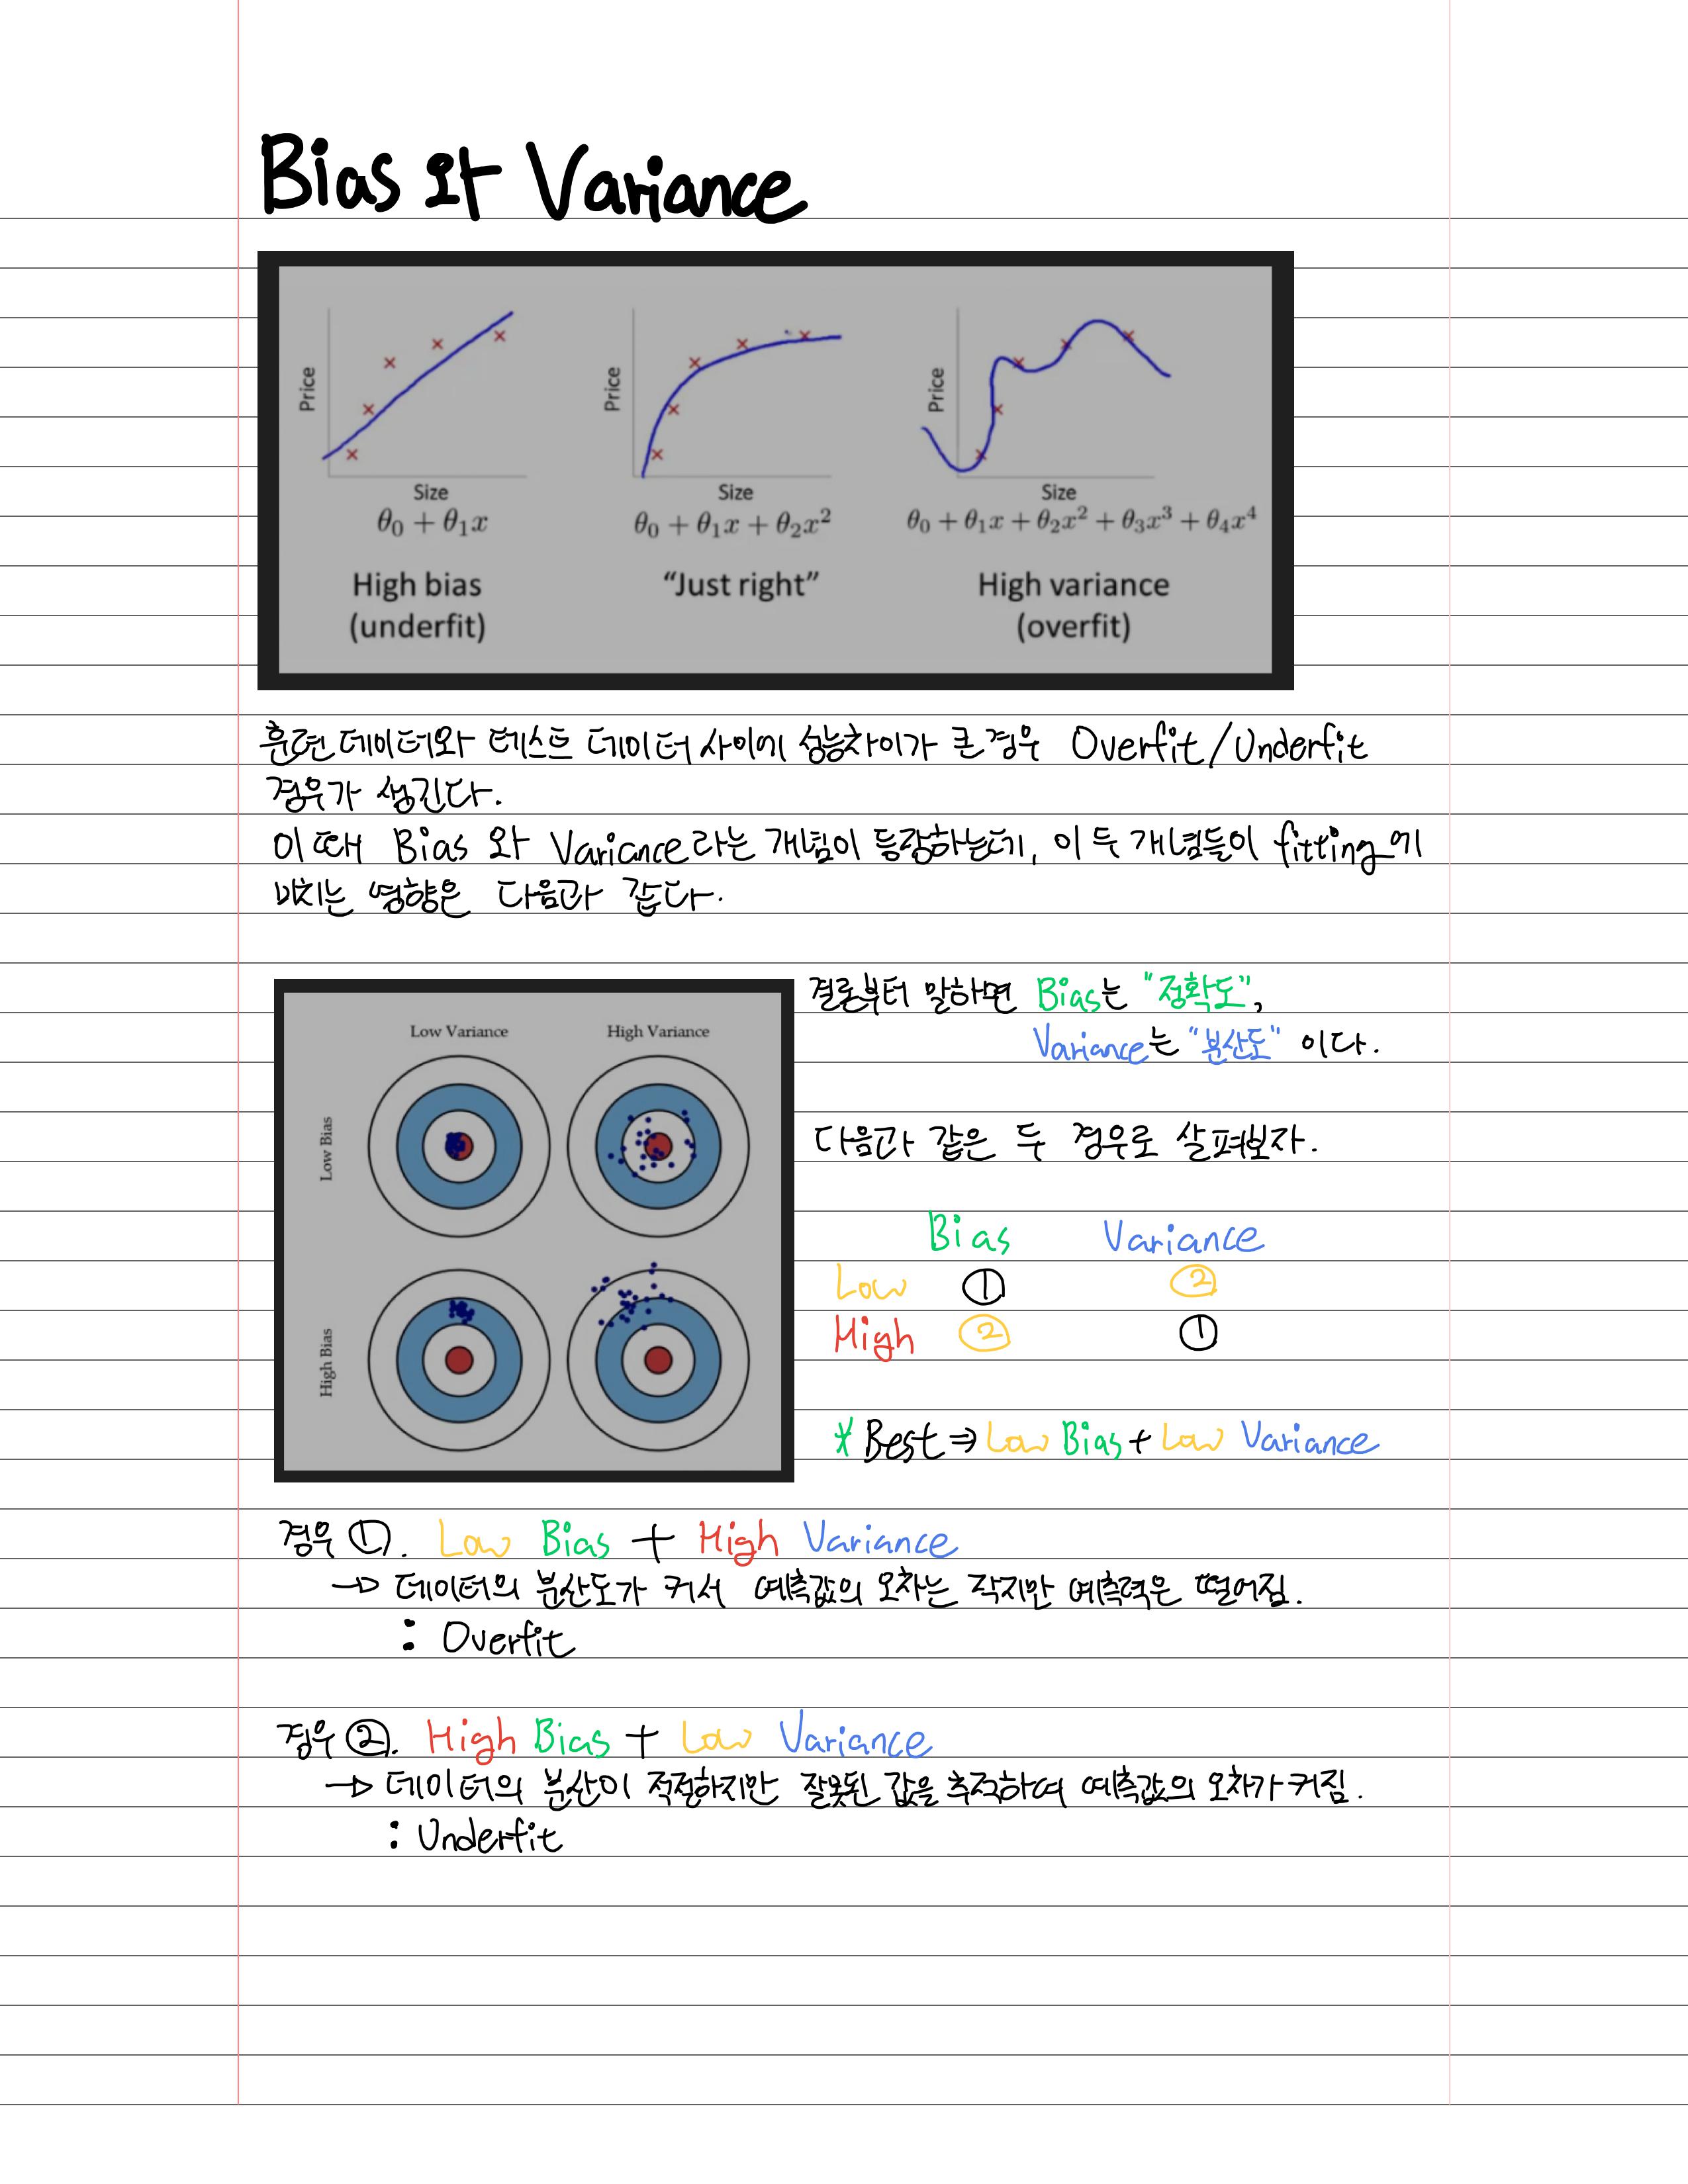 Bias 와 Variance
Price
Price
Price
Size
Size
Size
θ₀ + θ₁x
θ₀ + θ₁x + θ₂x²
θ₀ + θ₁x + θ₂x² + θ₃x³ + θ₄x⁴
High bias
(underfit)
“Just right”
High variance
(overfit)
훈련 데이터와 테스트 데이터 사이에 성능차이가 큰 경우 Overfit/Underfit
경우가 생긴다.
이 때 Bias 와 Variance라는 개념이 등장하는데, 이 두 개념들이 fitting에
미치는 영향은 다음과 같다.
Low Variance
High Variance
Low Bias
High Bias
결론부터 말하면 Bias는 "정확도",
Variance는 "분산도" 이다.
다음과 같은 두 경우로 살펴보자.
Bias Variance
Low ① ②
High ② ①
* Best ⇒ Low Bias + Low Variance
경우 ①. Low Bias + High Variance
→ 데이터의 분산도가 커서 예측값의 오차는 작지만 예측력은 떨어짐.
: Overfit
경우 ②. High Bias + Low Variance
→ 데이터의 분산이 적절하지만 잘못된 값을 추적하여 예측값의 오차가 커짐.
: Underfit